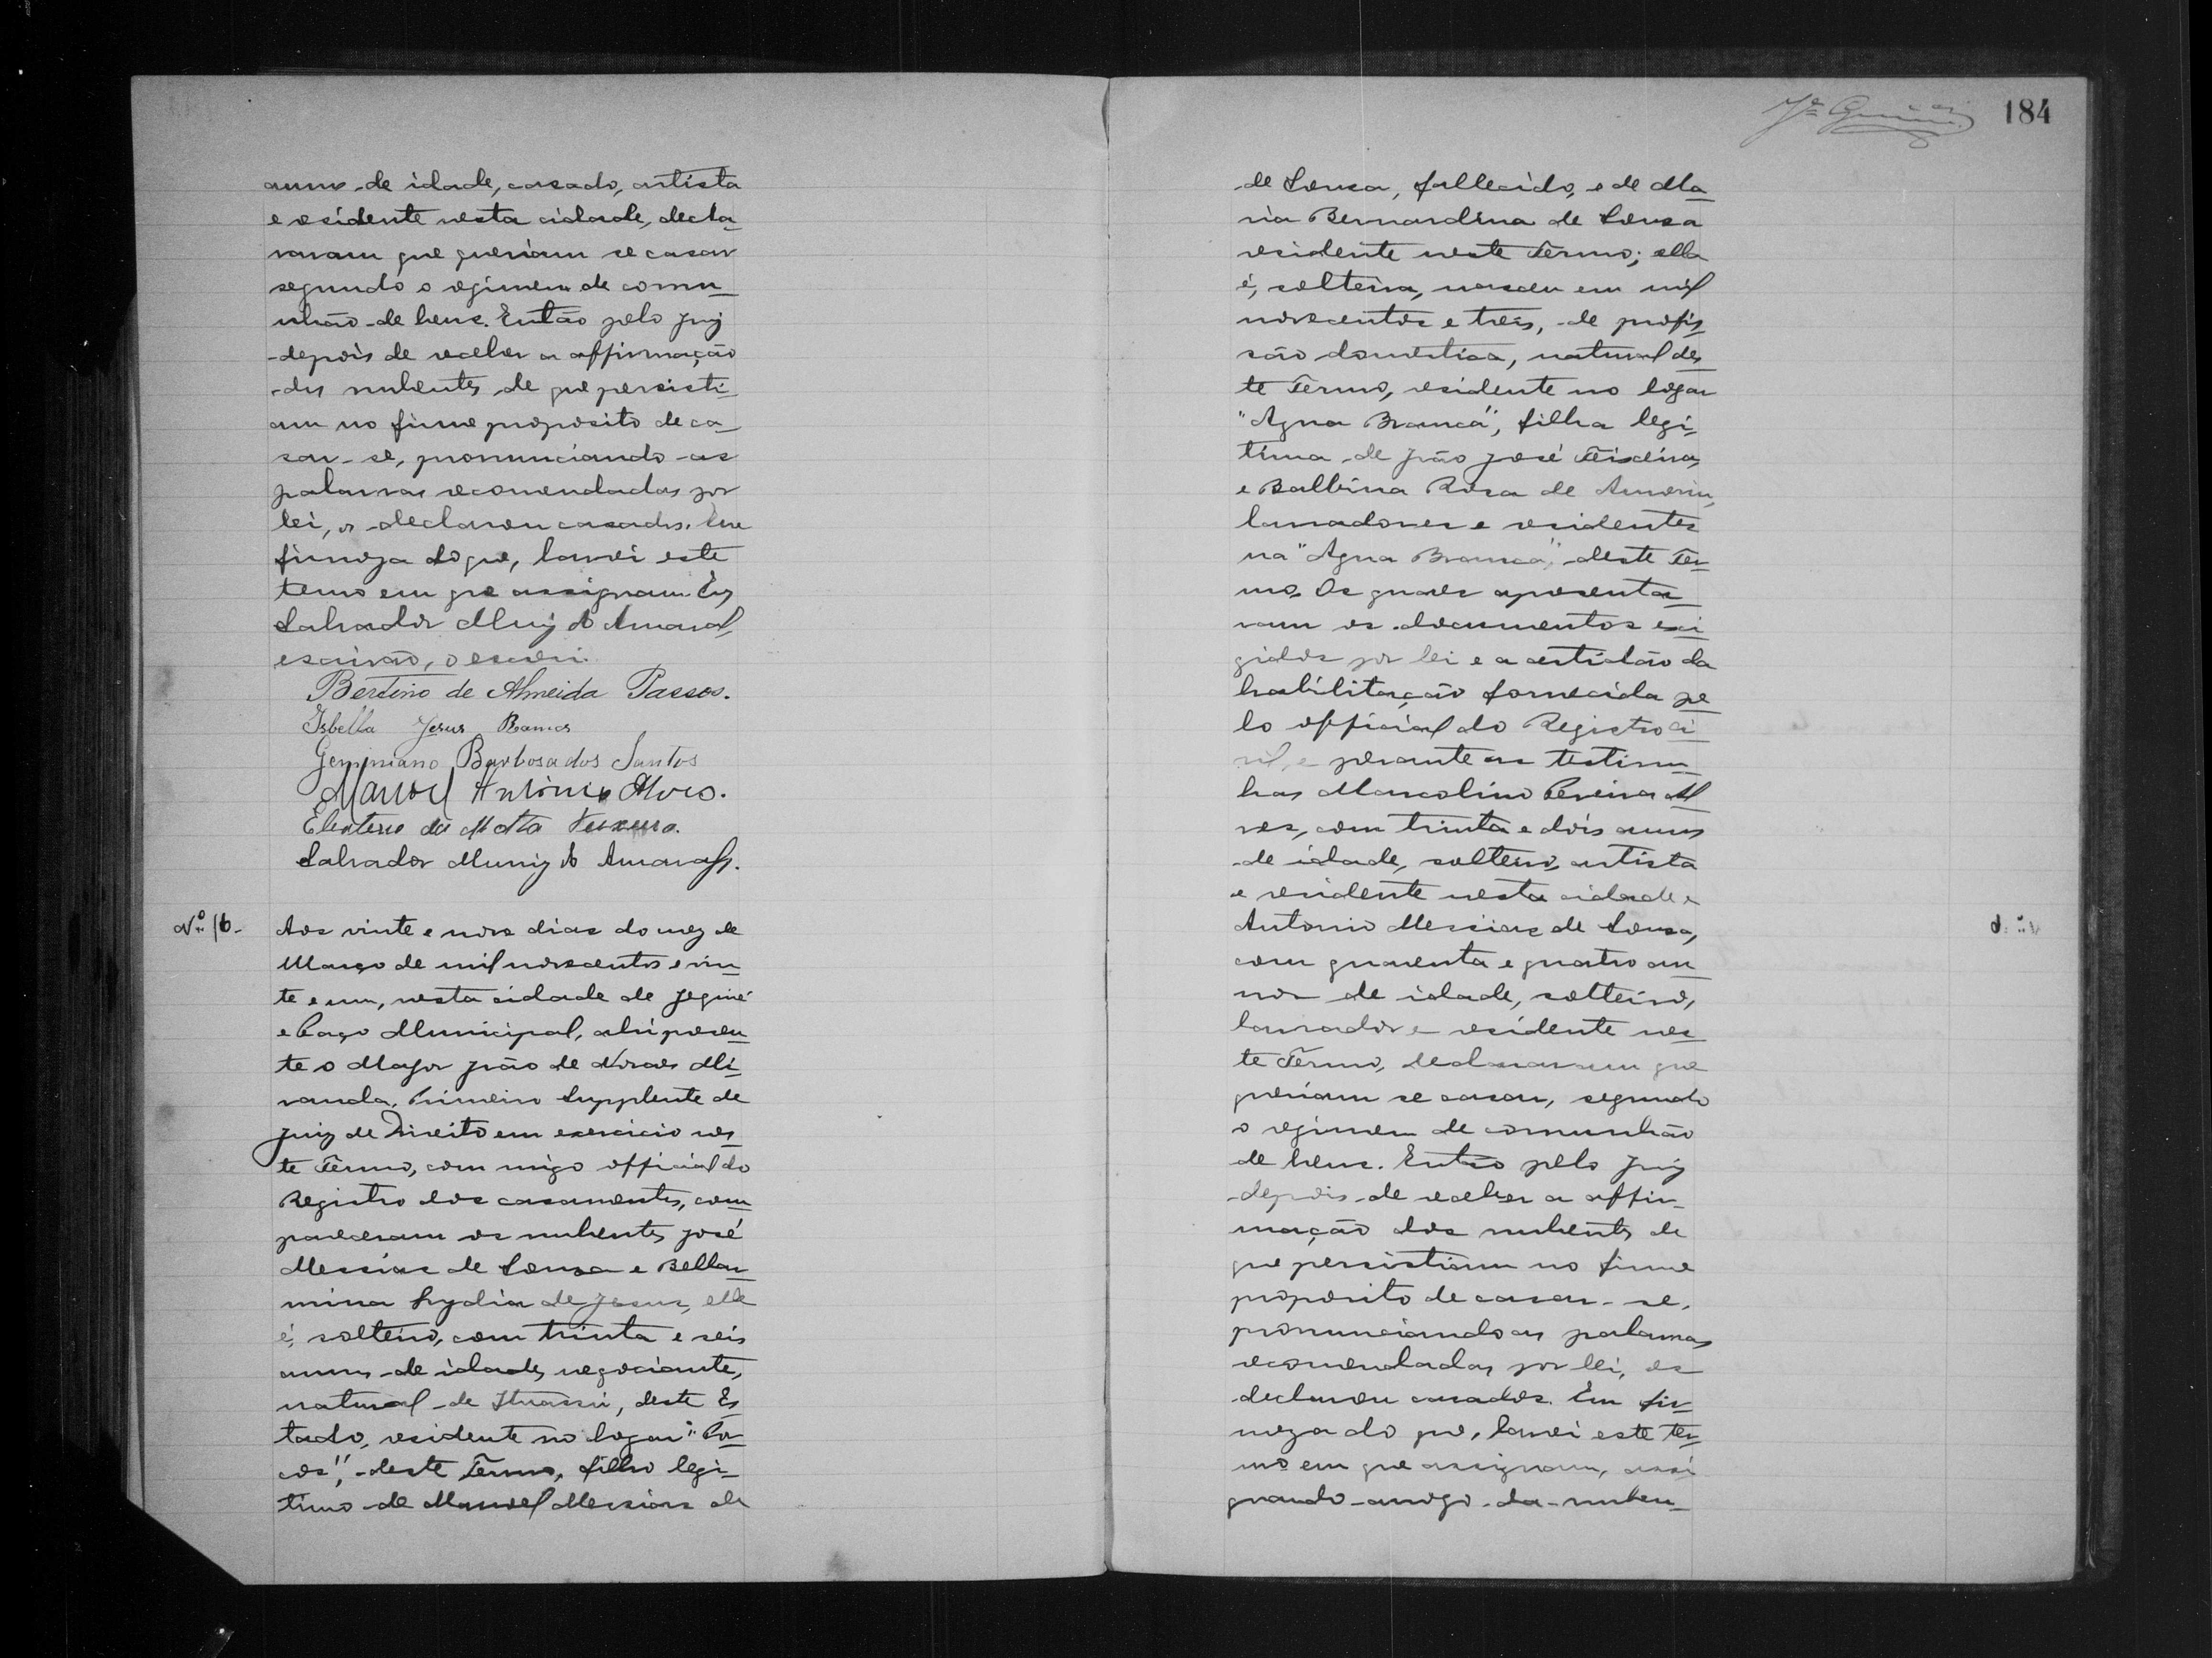 annos de idade, casado, artista
e residente nesta cidade, decla-
raram que queriam se casar
segundo o regimem de commu-
nhão de bens. Então pelo Juiz
depois de receber a affirmação
dos nubentes de que persisti-
am no firme proposito de ca-
sar-se, pronunciando as
palavras recomendadas por
lei, os declarou casados. Em
firmeza do que, lavrei este
termo em que assignam. Eu,
Salvador Muniz do Amaral,
escrivão, o escrevi.
Bertino de Almeida Passos.
Isbella Jesus Ramos
Geminiano Barbosa dos Santos
Manoel Antônio Alves.
Eleuterio da Motta Teixeira.
Salvador Muniz do Amaral.
Nº 16.
Aos vinte e nove dias do mez de
Março de mil novecentos e vin-
te e um, nesta cidade de Jequié
e Paço Municipal, ahi presen-
te o Major João de Novaes Mi-
randa, Primeiro Supplente de
Juiz de Direito em exercicio nes-
te Termo, com migo official do
Registro dos casamentos, com-
pareceram os nubentes José
Messias de Sousa e Bellar-
mina Lydia de Jesus, elle
é, solteiro, com trinta e seis
annos de idade, negociante,
natural de Ituassú, deste Es-
tado, residente no logar "Por-
cos", deste Termo, filho legi-
timo de Manoel Messias de
184
de Sousa, fallecido, e de Ma-
ria Bernardina de Sousa
residente neste Termo; ella
é, solteira, nasceu em mil
novecentos e tres, de profis-
são domestica, natural des-
te Termo, residente no logar
"Agua Branca", filha legi-
tima de João José Teixeira,
e Balbina Rosa de Amorim,
lavradores e residentes
na "Agua Branca", deste Ter-
mo. Os quaes apresenta-
ram os documentos exi-
gidos por lei e a certidão da
habilitação fornecida pe-
lo official do Registro ci-
vil, e perante as testimu-
has Marcolino Pereira Al-
ves, com trinta e dois annos
de idade, solteiro, artista
e residente nesta cidade e
Antonio Messias de Sousa,
com quarenta e quatro an-
nos de idade, solteiro,
lavrador e residente nes-
te Termo, declararam que
queriam se casar, segundo
o regimem de comunhão
de bens. Então pelo Juiz
depois de receber a affir-
mação dos nubentes de
que persistiam no firme
proposito de casar-se,
pronunciando as palavras
recomendadas por lei, os
declarou casados. Em fir-
meza do que, lavrei este ter-
mo em que assignam, assi-
gnando a rogo da nuben-